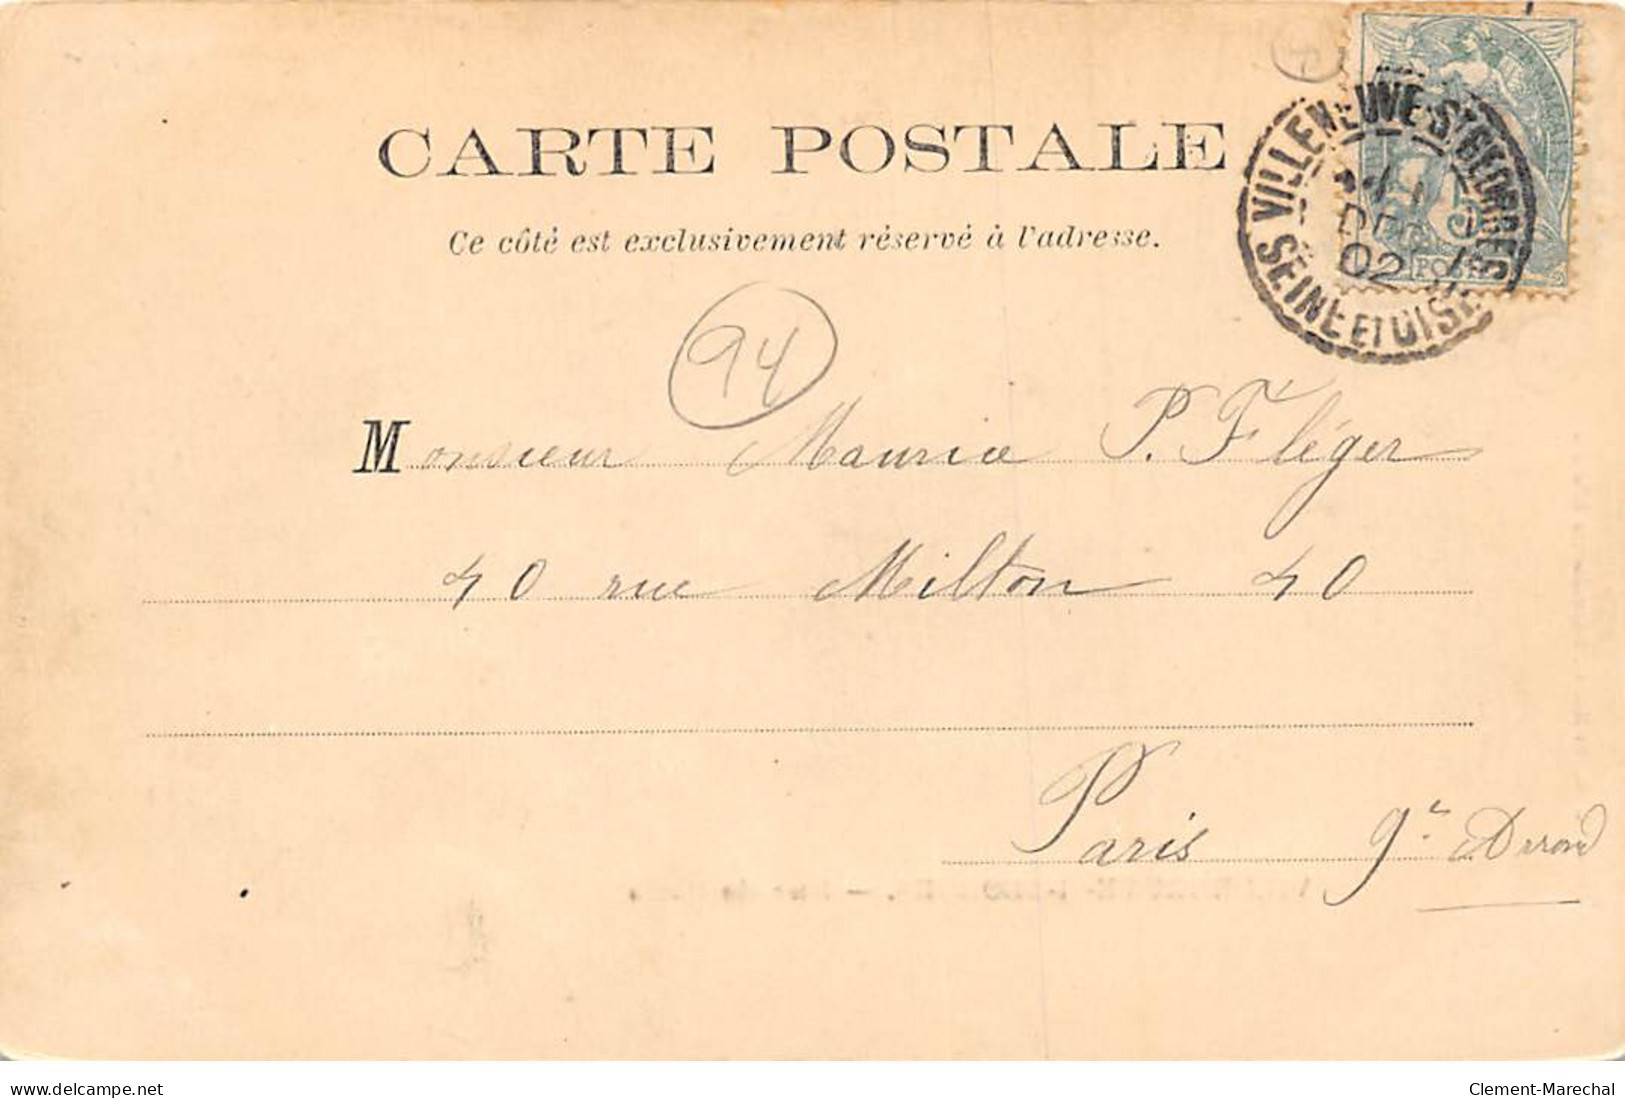 CARTE POSTALE
Ce côté est exclusivement réservé à l'adresse.
VILLENEUVE-ST GEORGES
DÉC
02
SEINE ET OISE
5
POSTES
94
Monsieur Maurice P. Fléger
40 rue Milton 40
Paris 9e
www.delcampe.net
Clement-Marechal